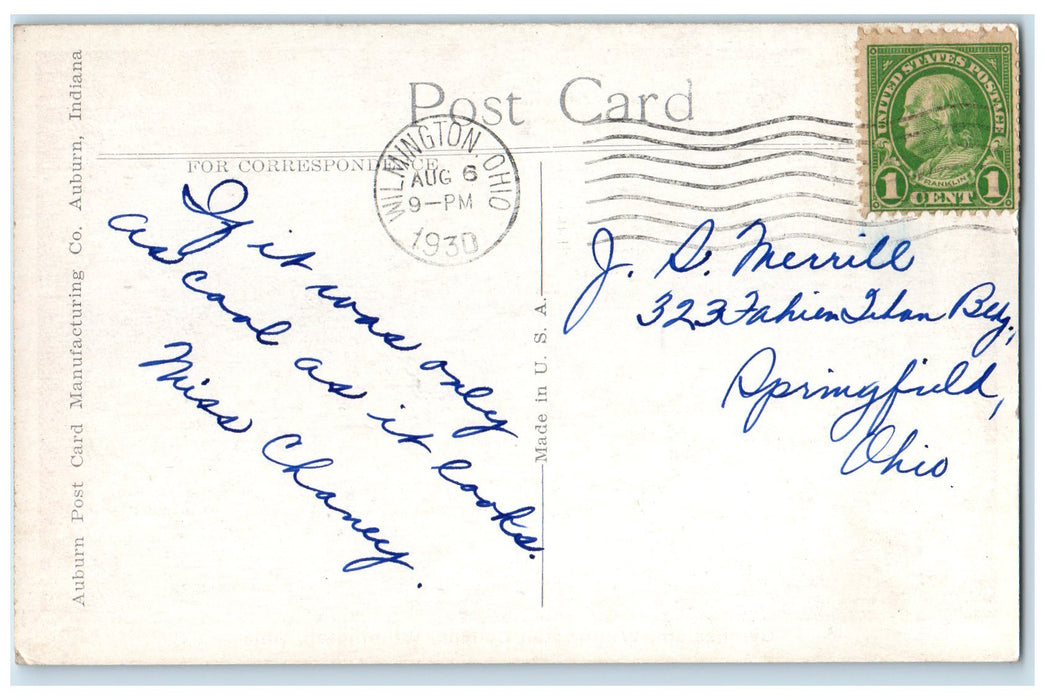 Auburn Post Card Manufacturing Co. Auburn, Indiana
Post Card
FOR CORRESPONDENCE
WILMINGTON, OHIO
AUG 6
9-PM
1930
UNITED STATES POSTAGE
FRANKLIN
1 CENT 1
If it was only
as cool as it looks.
Miss Chaney.
Made in U. S. A.
J. S. Merrill
323 Bldg,
Springfield,
Ohio